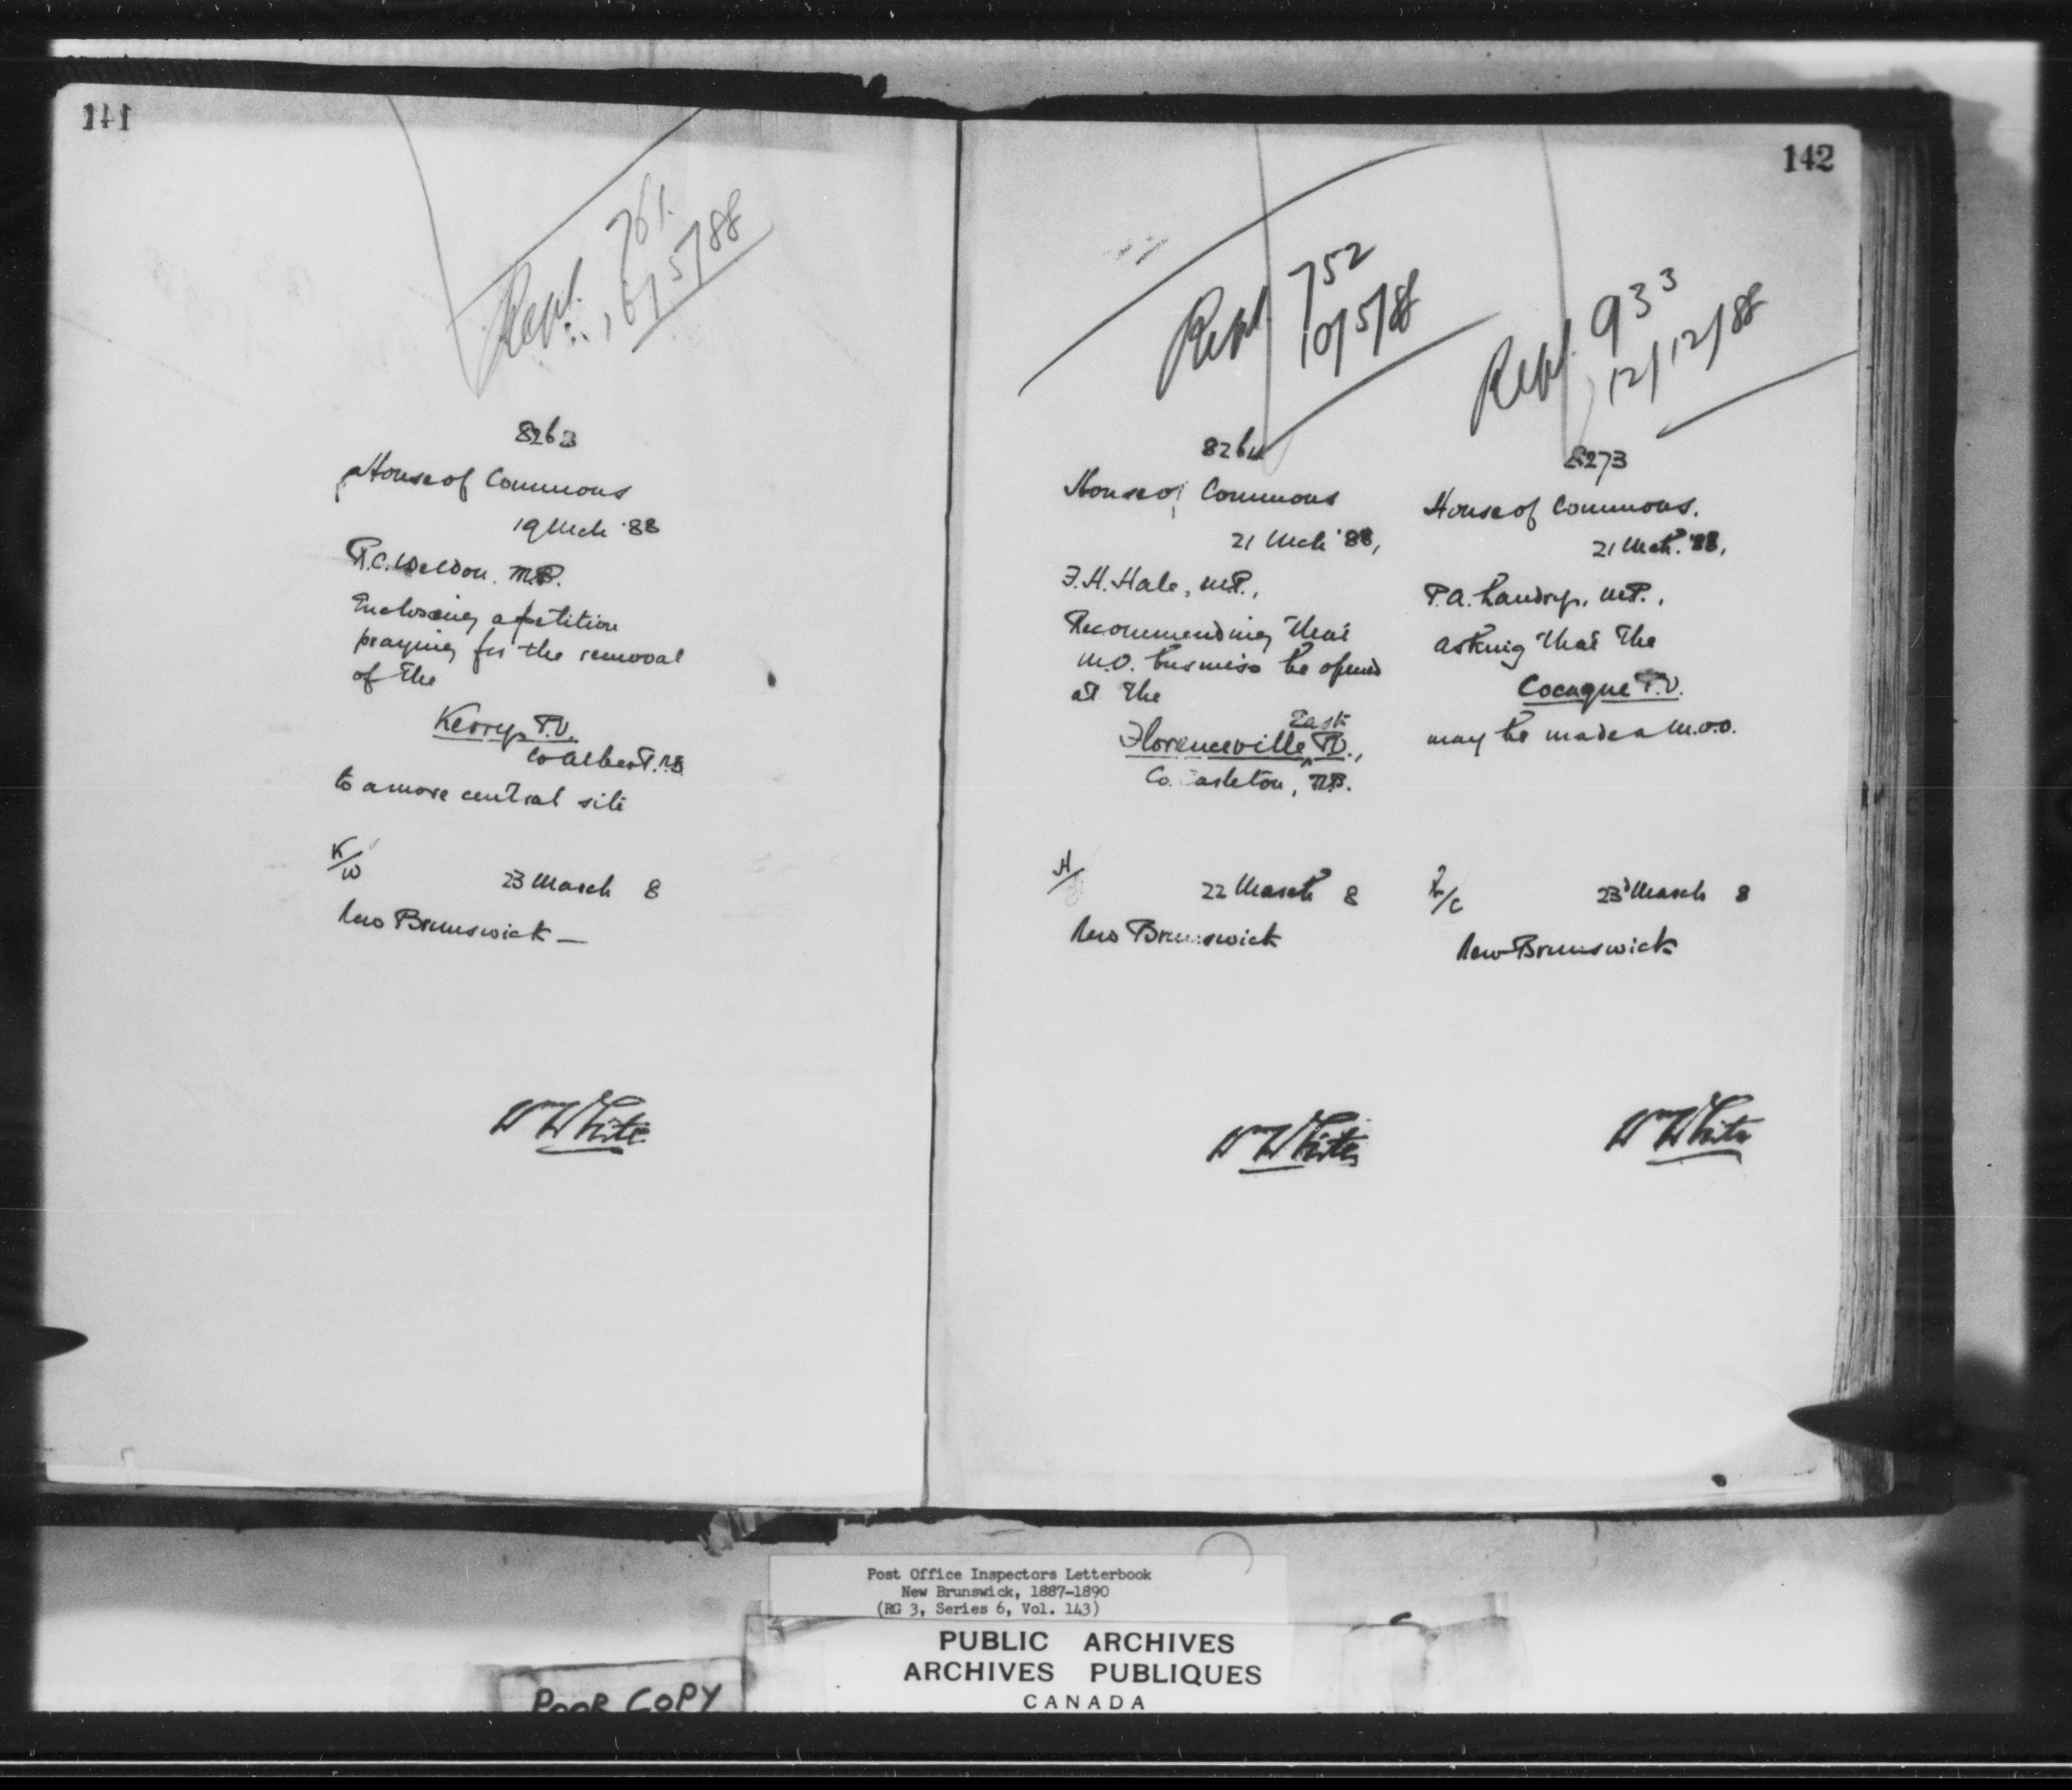 141
Rept. 761.
16/5/88
8263
House of Commons
19 Mch '88
R.C. Weldon, M.P.
Enclosing a petition
praying for the removal
of the
Kerry P.O.
Co Albert, N.B.
to a more central site
K/W
23 March 8
New Brunswick —
Wm White
142
Rept. 752
10/5/88
8264
House of Commons
21 Mch '88,
F.H. Hale, M.P.,
Recommending that
M.O. business be opened
at the
East
Florenceville P.O.,
Co. Carleton, N.B.
H/
22 March 8
New Brunswick
Wm White
Rept. 933
12/12/88
8273
House of Commons.
21 Mch. '88,
P.A. Landry, M.P.,
asking that the
Cocagne P.O.
may be made a M.O.O.
L/C
23 March 8
New Brunswick
Wm White
Post Office Inspectors Letterbook
New Brunswick, 1887-1890
(RG 3, Series 6, Vol. 143)
PUBLIC ARCHIVES
ARCHIVES PUBLIQUES
CANADA
POOR COPY